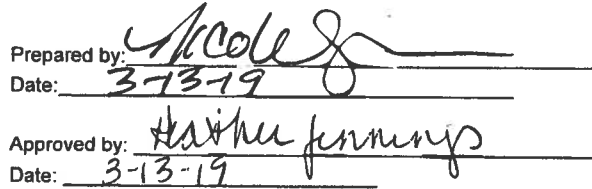 Prepared by: Nicole
Date: 3-13-19
Approved by: Heather Jennings
Date: 3-13-19